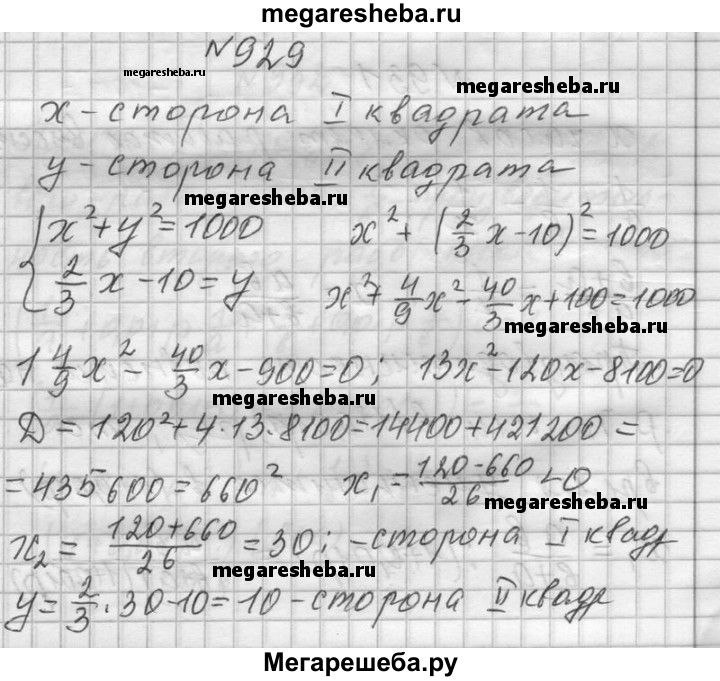 megaresheba.ru
№929
megaresheba.ru
megaresheba.ru
x - сторона I квадрата
y - сторона II квадрата
megaresheba.ru
{ x² + y² = 1000
x² + (2/3 x - 10)² = 1000
2/3 x - 10 = y
x² + 4/9 x² - 40/3 x + 100 = 1000
megaresheba.ru
1 4/9 x² - 40/3 x - 900 = 0; 13x² - 120x - 8100 = 0
megaresheba.ru
D = 120² + 4·13·8100 = 14400 + 421200 =
= 435600 = 660² x₁ = (120 - 660)/26 < 0
megaresheba.ru
x₂ = (120 + 660)/26 = 30; - сторона I квадр
megaresheba.ru
y = 2/3 · 30 - 10 = 10 - сторона II квадр
Мегарешеба.ру